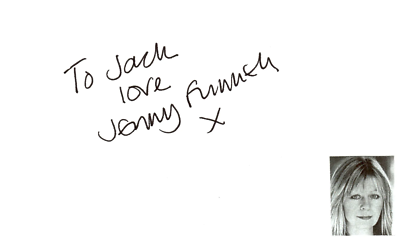 To Jack
love
Jenny Funnell
x